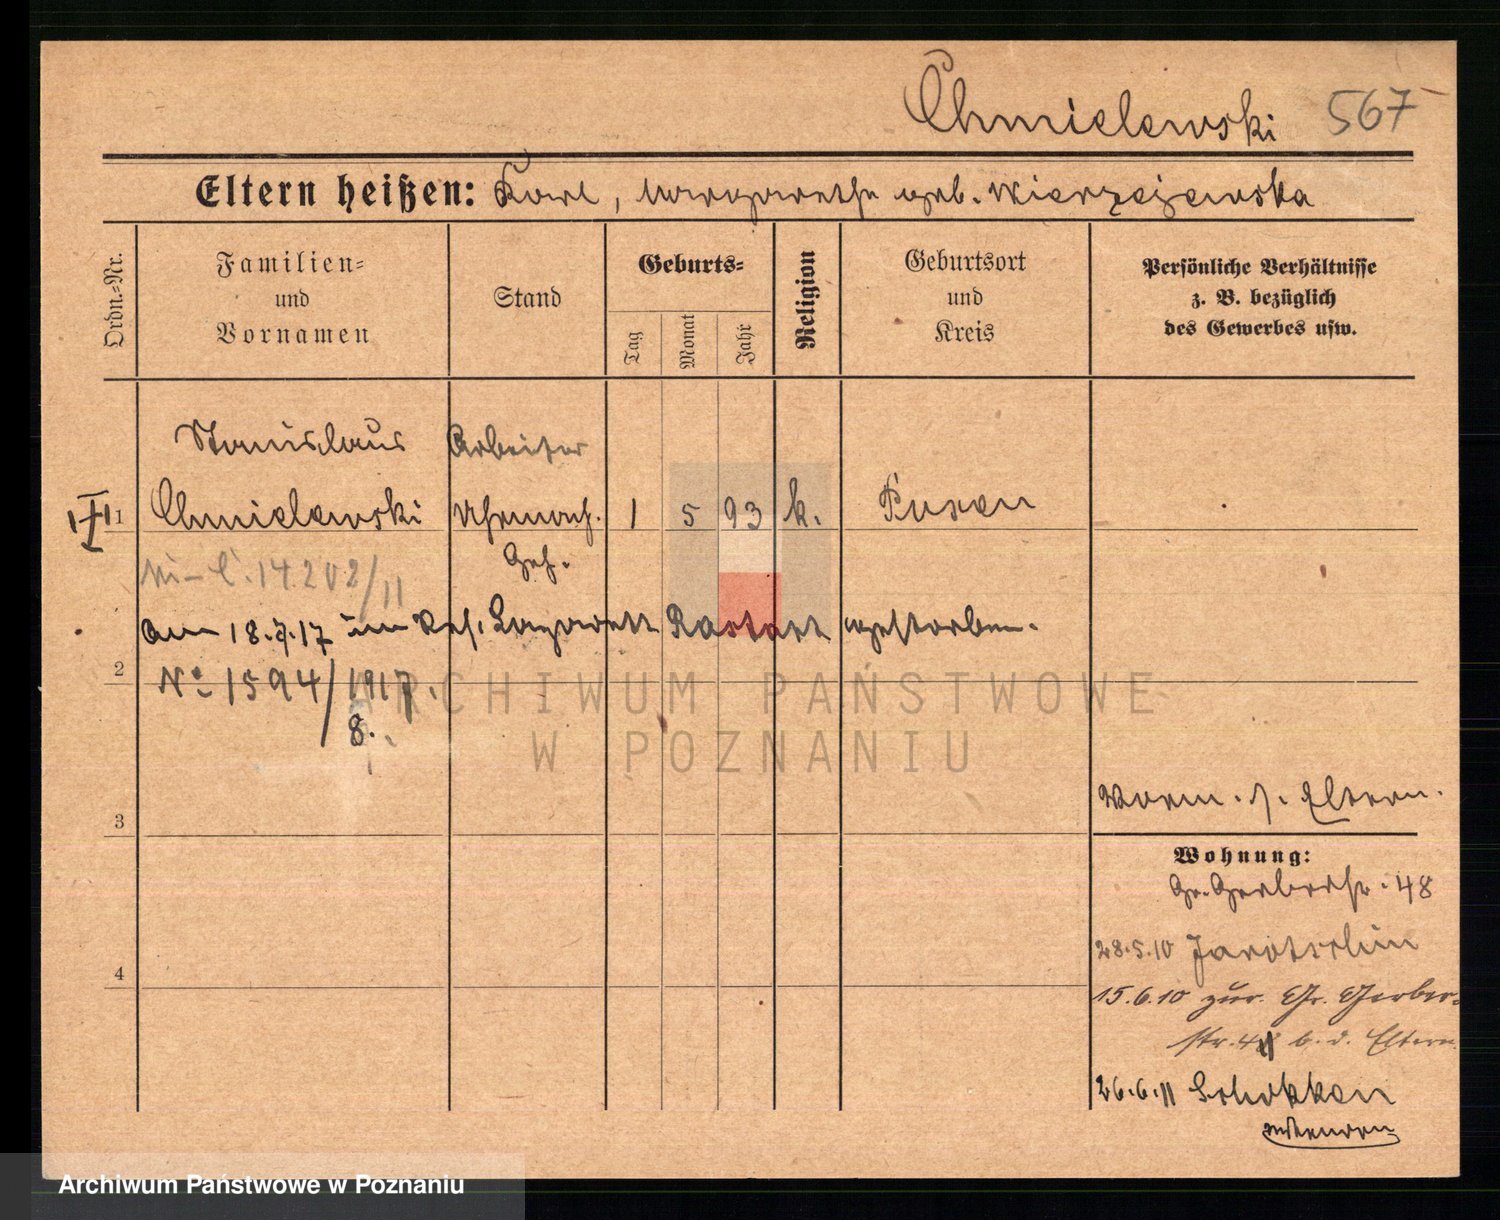 Chmielewski 567
Eltern heißen: Karl, Margarethe geb. Wierzejewska
Ordn.-Nr.
Familien- und Vornamen
Stand
Geburts-
Tag
Monat
Jahr
Religion
Geburtsort und Kreis
Persönliche Verhältnisse z. B. bezüglich des Gewerbes usw.
Stanislaus Arbeiter
1 Chmielewski Uhrmach. 1 5 93 k. Posen
Geh.
14202/11
Am 18.7.17 im Res. Lazarett Rastatt gestorben.
2
No 1594/1917
8.
ARCHIWUM PAŃSTWOWE
W POZNANIU
3
Vorm. s. Eltern.
Wohnung:
Gr. Gerberstr. 48
28.5.10 Jarotschin
4
15.6.10 zur. Gr. Gerber-
str. 48 b. d. Eltern
26.6.11 Schokken
Archiwum Państwowe w Poznaniu